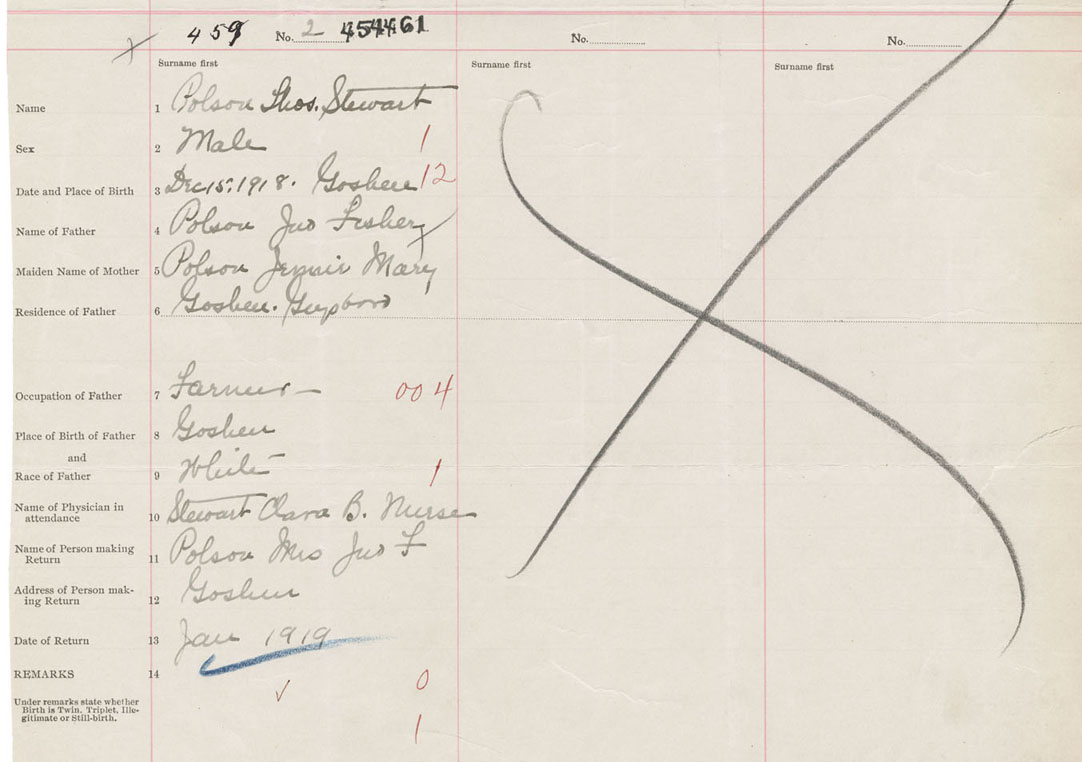 459 No. 2 454461
No.
No.
Surname first
Surname first
Surname first
Name 1 Polson Thos. Stewart
Sex 2 Male 1
Date and Place of Birth 3 Dec 15, 1918. Goshen 12
Name of Father 4 Polson Jno Fisher
Maiden Name of Mother 5 Polson Jennie Mary
Residence of Father 6 Goshen. Guysboro
Occupation of Father 7 Farmer 004
Place of Birth of Father 8 Goshen
and
Race of Father 9 White 1
Name of Physician in
attendance 10 Stewart Clara B. Nurse
Name of Person making
Return 11 Polson Mrs Jno F
Address of Person mak-
ing Return 12 Goshen
Date of Return 13 Jan 1919
REMARKS 14
0
Under remarks state whether
Birth is Twin. Triplet, Ille-
gitimate or Still-birth.
1